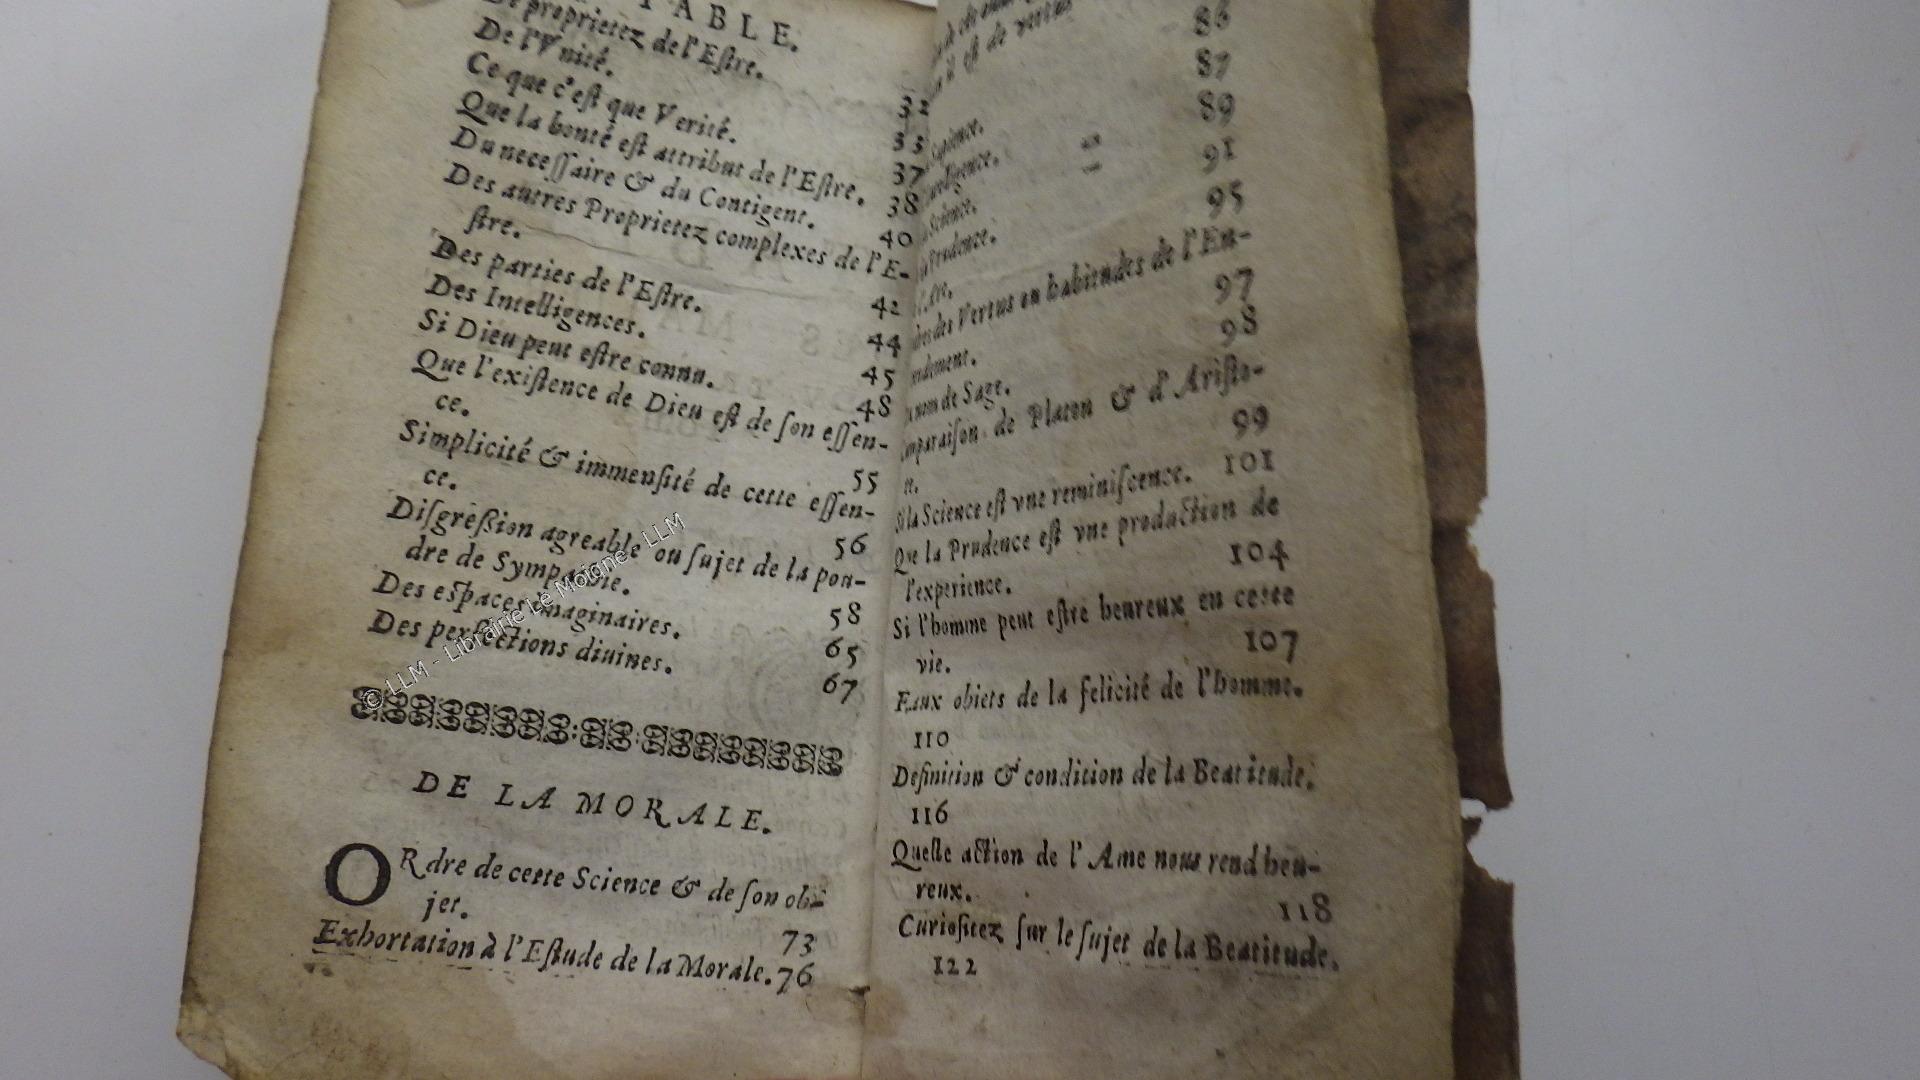 TABLE.
proprietez de l'Eſtre.
32
De l'Vnité.
33
Ce que c'eſt que Verité.
37
Que la bonté eſt attribut de l'Eſtre.
38
Du neceſſaire & du Contigent.
40
Des autres Proprietez complexes de l'E-
ſtre.
42
Des parties de l'Eſtre.
44
Des Intelligences.
45
Si Dieu peut eſtre connu.
48
Que l'exiſtence de Dieu eſt de ſon eſſen-
ce.
55
Simplicité & immenſité de cette eſſen-
ce.
56
Diſgreſſion agreable ou ſujet de la pou-
dre de Sympathie.
58
Des eſpaces imaginaires.
65
Des perfections diuines.
67
DE LA MORALE.
ORdre de cette Science & de ſon ob-
jet.
73
Exhortation à l'Eſtude de la Morale. 76
eſt de vertus
86
87
Sapience.
89
Science.
91
Prudence.
95
des Vertus ou habitudes de l'En-
97
nom de Sage.
98
de Platon & d'Ariſto-
te.
99
Si la Science eſt vne reminiſcence. 101
Que la Prudence eſt vne production de
l'experience.
104
Si l'homme peut eſtre heureux en cette
vie.
107
Faux obiets de la felicité de l'homme.
110
Definition & condition de la Beatitude.
116
Quelle action de l'Ame nous rend heu-
reux.
118
Curioſitez ſur le ſujet de la Beatitude.
122
© LLM - Librairie Le Moigne - LLM